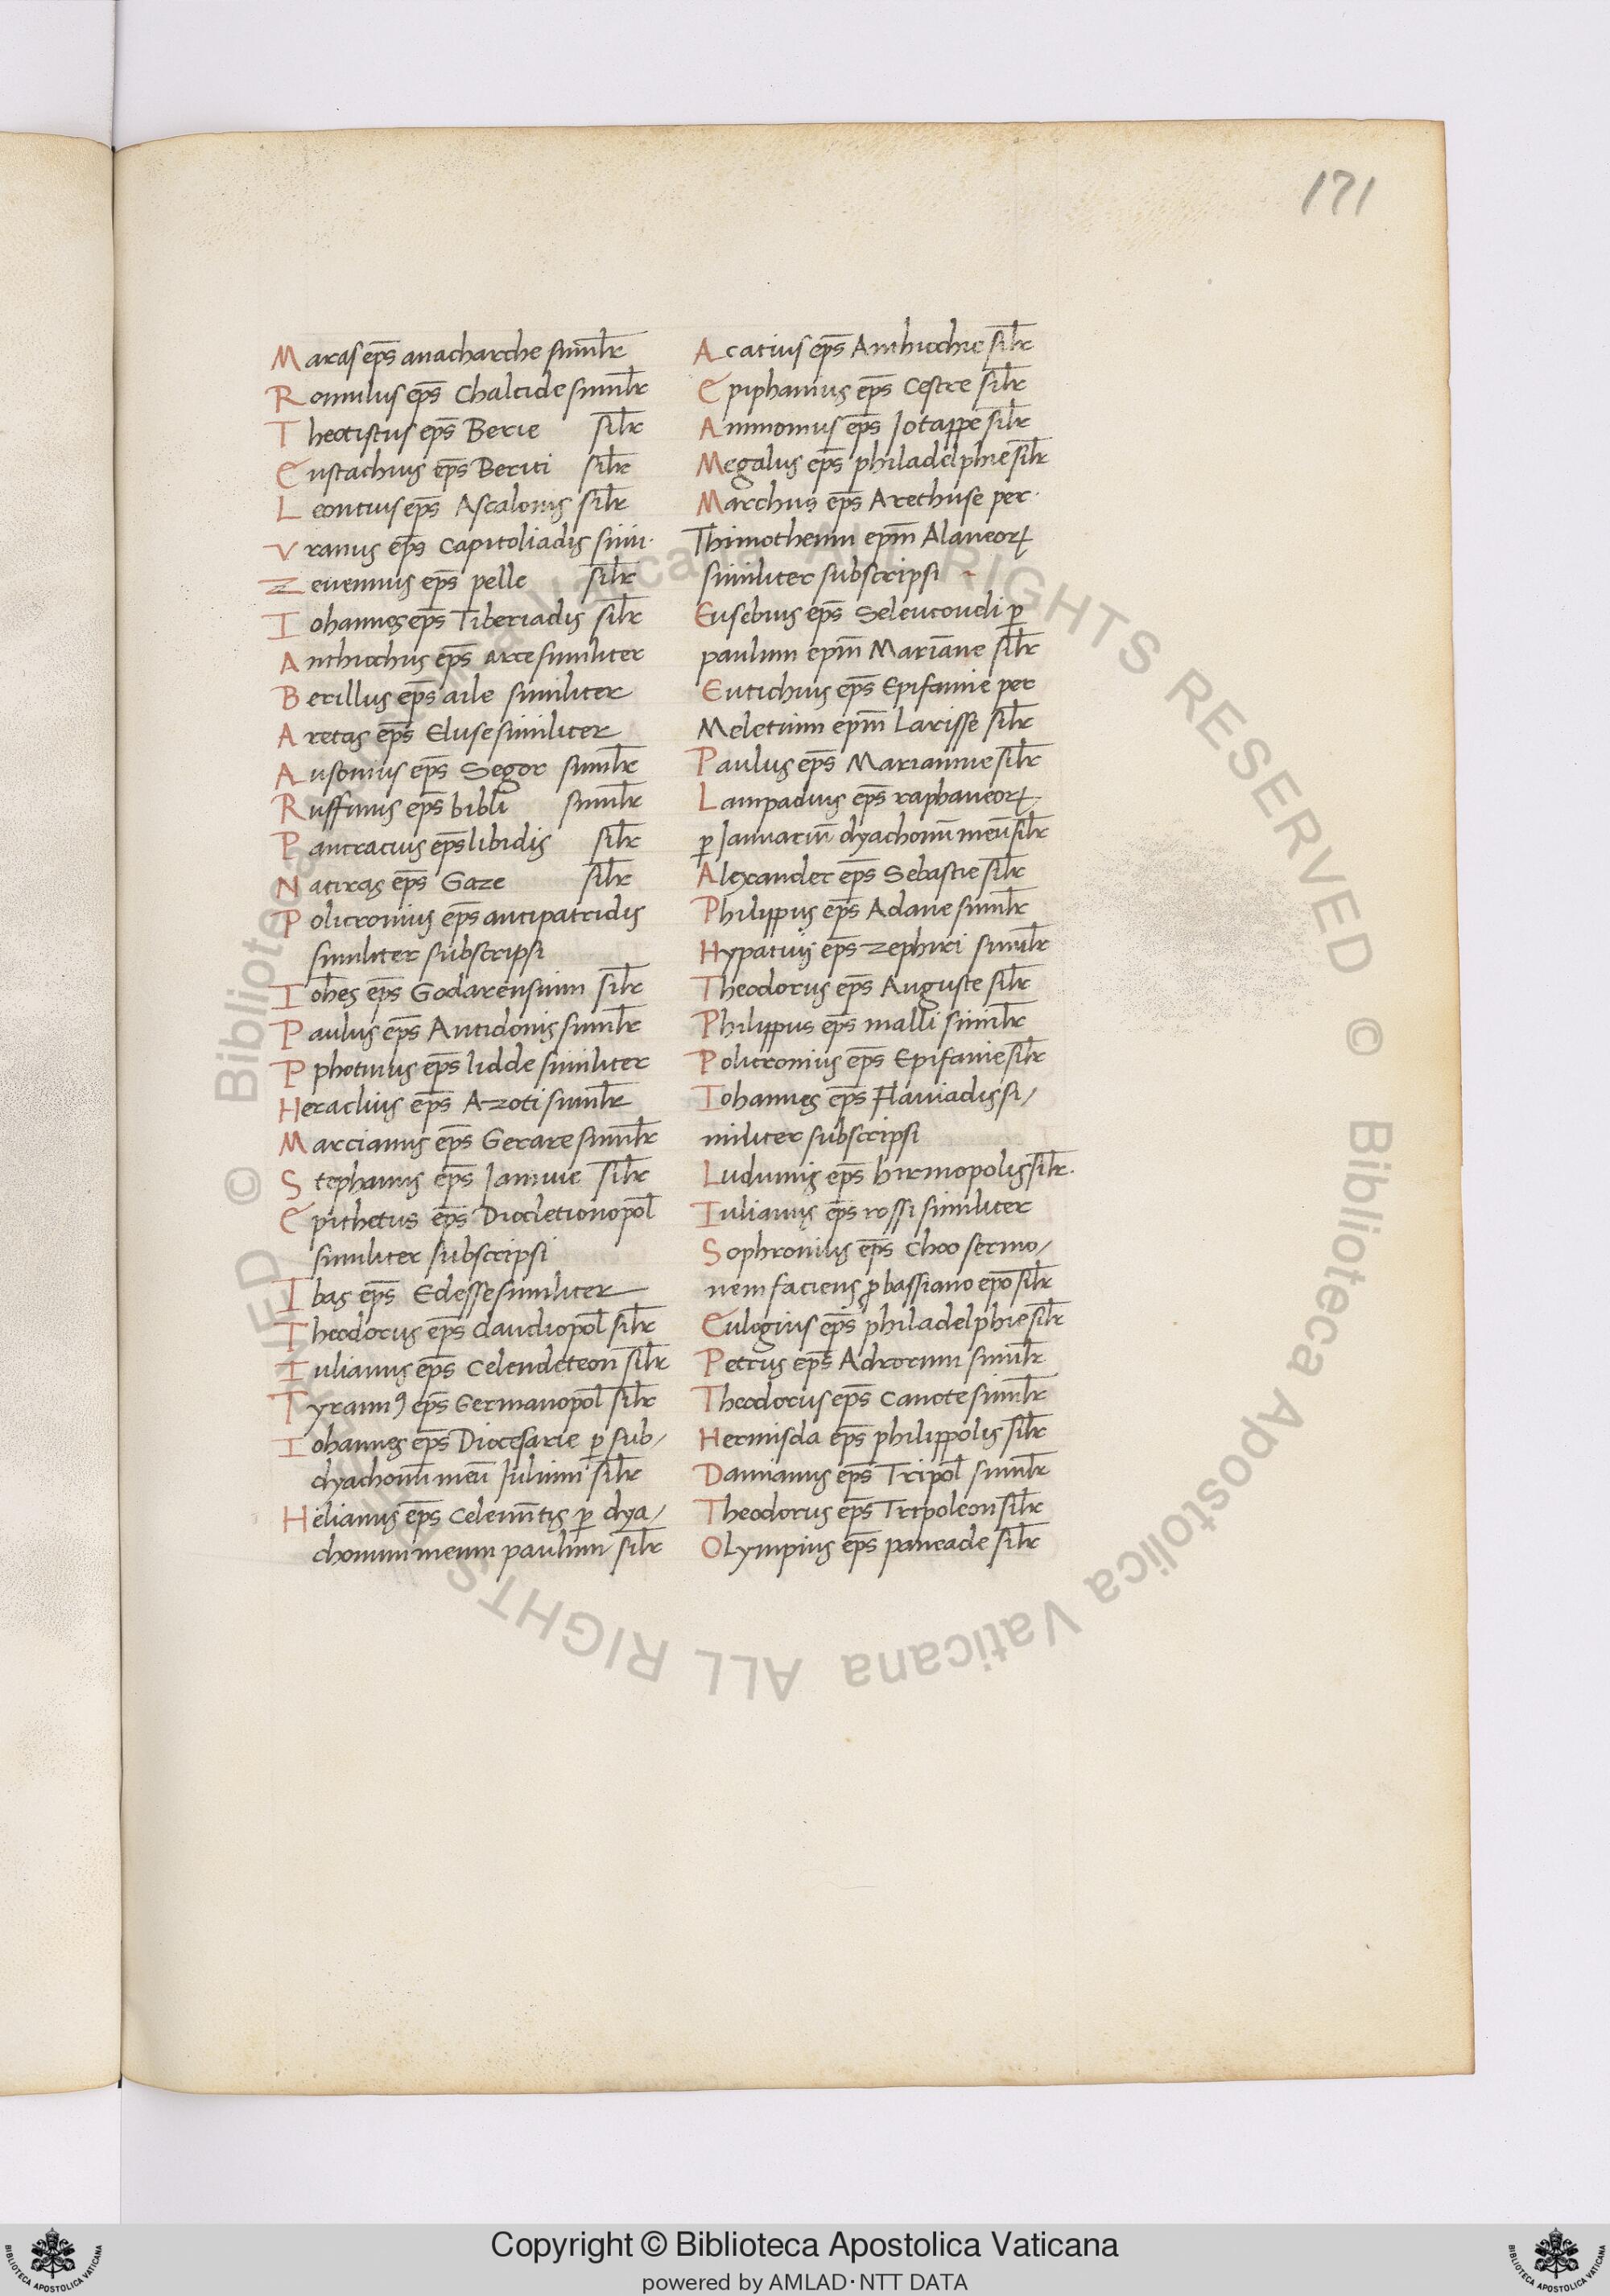 171
Maras ep̄s anacharche simil̄r
Romulus ep̄s Chalcide simil̄r
Theotistus ep̄s Berie sil̄r
Eustachius ep̄s Beriti sil̄r
Leontius ep̄s Ascalonis sil̄r
Vranus ep̄s Capitoliadis simi·
Zeuennus ep̄s pelle sil̄r
Iohannes ep̄s Tiberiadis sil̄r
Anthiochus ep̄s arce similiter
Berillus ep̄s aile similiter
Aretas ep̄s Eluse similiter
Ausonius ep̄s Segor simil̄r
Ruffinus ep̄s bibli simil̄r
Pancracius ep̄s libidis sil̄r
Natiras ep̄s Gaze sil̄r
Policronius ep̄s antipatridis
similiter subscripsi
Ioh̄es ep̄s Godarensium sil̄r
Paulus ep̄s Antidonis simil̄r
Pphotinus ep̄s lidde similiter
Heraclius ep̄s Azoti simil̄r
Marcianus ep̄s Gerare simil̄r
Stephanus ep̄s Iamnie sil̄r
Epithetus ep̄s Diocletionopol̄
similiter subscripsi
Ibas ep̄s Edesse similiter
Theodorus ep̄s Claudiopol̄ sil̄r
Iulianus ep̄s Celendeteon sil̄r
Tyrannꝰ ep̄s Germanopol̄ sil̄r
Iohannes ep̄s Diocesarie ꝑ sub/
dyachonū meū Iulium sil̄r
Helianus ep̄s Celenn̄tis ꝑ dya/
chonum meum paulum sil̄r
Acatius ep̄s Anthiochie sil̄r
Epiphanius ep̄s Cestre sil̄r
Ammonius ep̄s Iotappe sil̄r
Megalus ep̄s philadelphie sil̄r
Marchus ep̄s Arethuse per·
Thimotheum ep̄m Alaneoꝝ
similiter subscripsi
Eusebius ep̄s Seleucondi ꝑ
paulum ep̄m Mariāne sil̄r
Eutichius ep̄s Epifanie per
Meletium ep̄m Larisse sil̄r
Paulus ep̄s Mariamne sil̄r
Lampadius ep̄s raphaneoꝝ
ꝑ Ianuariū dyachonū meū sil̄r
Alexander ep̄s Sebastie sil̄r
Philippus ep̄s Adane simil̄r
Hypatius ep̄s zephiri simil̄r
Theodorus ep̄s Auguste sil̄r
Philippus ep̄s malli simil̄r
Policronius ep̄s Epifanie sil̄r
Iohannes ep̄s Flauiadis si/
militer subscripsi
Ludumis ep̄s hirmopolis sil̄r·
Iulianus ep̄s rossi similiter
Sophronius ep̄s Choo sermo/
nem faciens ꝓ bassiano ep̄o sil̄r
Eulogius ep̄s philadelphie sil̄r
Petrus ep̄s Adrorum simil̄r
Theodorus ep̄s Canote simil̄r
Hermisda ep̄s philippolis sil̄r
Damanus ep̄s Tripol̄ simil̄r
Theodorus ep̄s Tripoleon sil̄r
Olympius ep̄s paneade sil̄r
© Biblioteca Apostolica Vaticana ALL RIGHTS RESERVED
© Biblioteca Apostolica Vaticana ALL RIGHTS RESERVED
Copyright © Biblioteca Apostolica Vaticana
powered by AMLAD·NTT DATA
BIBLIOTECA APOSTOLICA VATICANA
BIBLIOTECA APOSTOLICA VATICANA